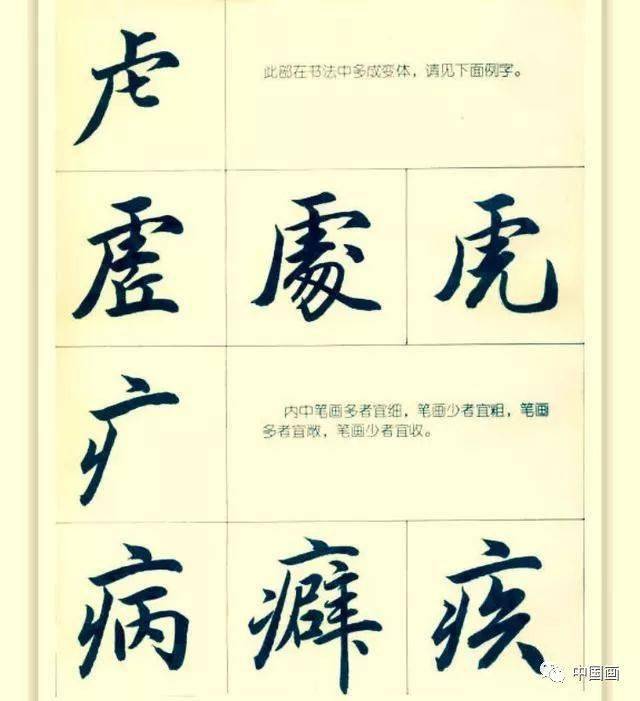 虍
此部在书法中多成变体，请见下面例字。
虚 處 虎
疒
内中笔画多者宜细，笔画少者宜粗，笔画
多者宜敞，笔画少者宜收。
病 癖 疾
中国画